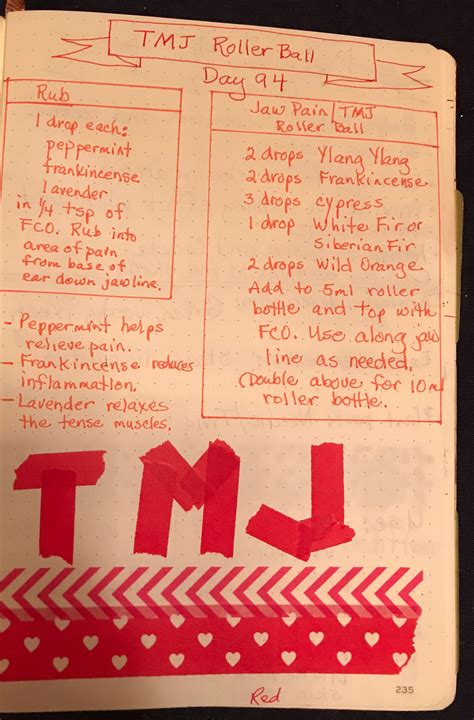 TMJ Roller Ball
Day 94
Rub
1 drop each:
peppermint
frankincense
lavender
in 1/4 tsp of
FCO. Rub into
area of pain
from base of
ear down jawline.
- Peppermint helps
relieve pain.
- Frankincense reduces
inflammation.
- Lavender relaxes
the tense muscles.
Jaw Pain/TMJ
Roller Ball
2 drops Ylang Ylang
2 drops Frankincense
3 drops cypress
1 drop White Fir or
Siberian Fir
2 drops Wild Orange
Add to 5ml roller
bottle and top with
FCO. Use along jaw
line as needed.
(Double above for 10ml
roller bottle.
TMJ
235
Red